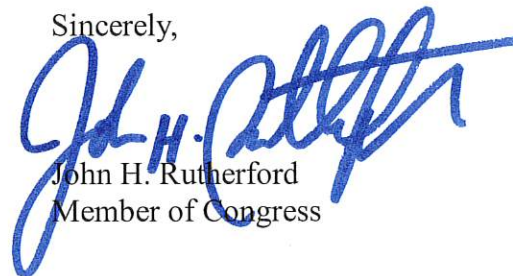 Sincerely,
John H. Rutherford
John H. Rutherford
Member of Congress